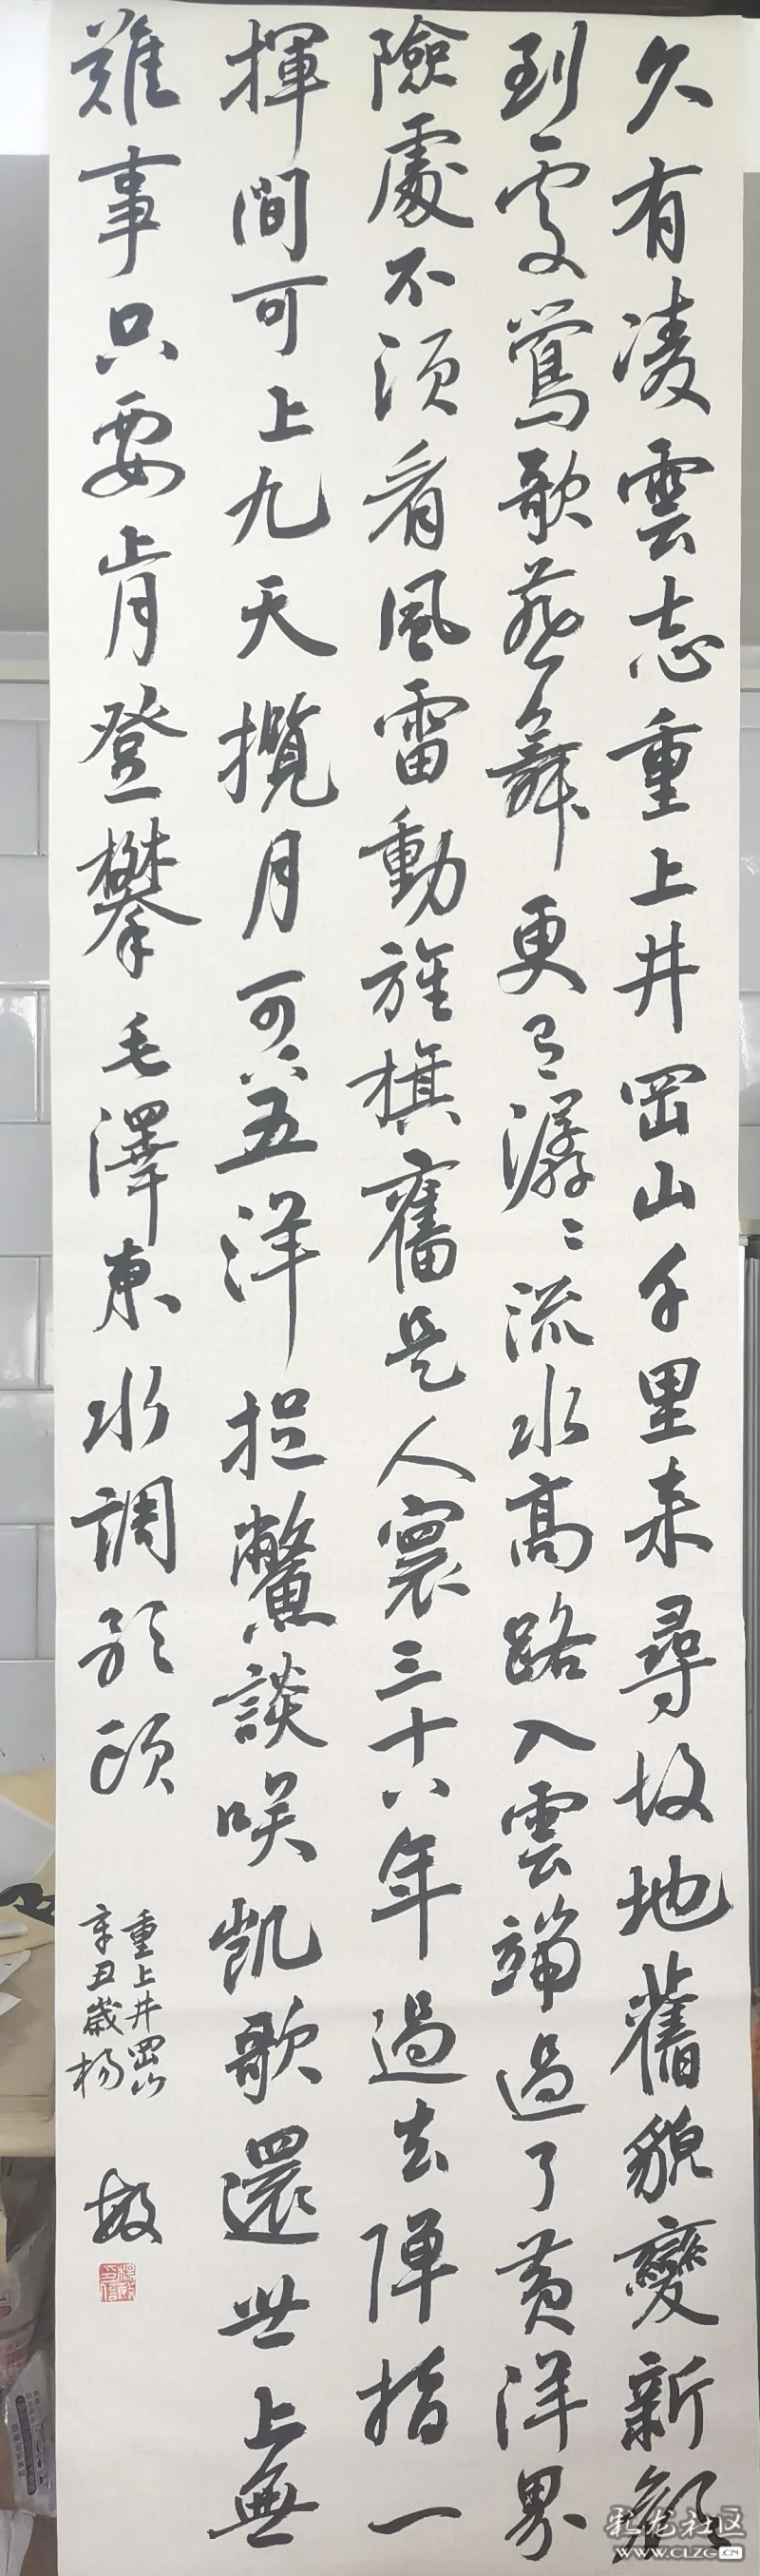 久有凌雲志重上井岡山千里来尋故地舊貌變新顏
到處鶯歌燕舞更有潺々流水高路入雲端過了黃洋界
險處不須看風雷動旌旗奮是人寰三十八年過去彈指一
揮間可上九天攬月可下五洋捉鱉談咲凱歌還世上無
難事只要肯登攀毛澤東水調歌頭
重上井岡山
辛丑歲楊敏
彩龙社区
WWW.CLZG.CN